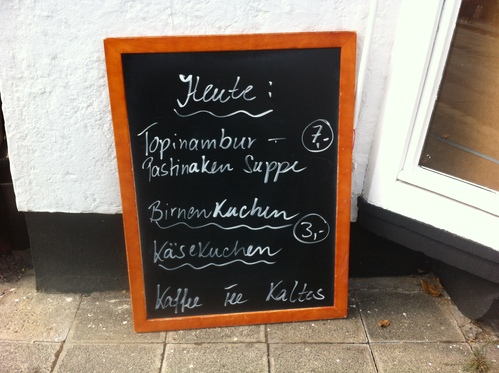 Heute:
Topinambur - 7,-
Pastinaken Suppe
Birnenkuchen
3,-
Käsekuchen
Kaffee Tee Kaltes